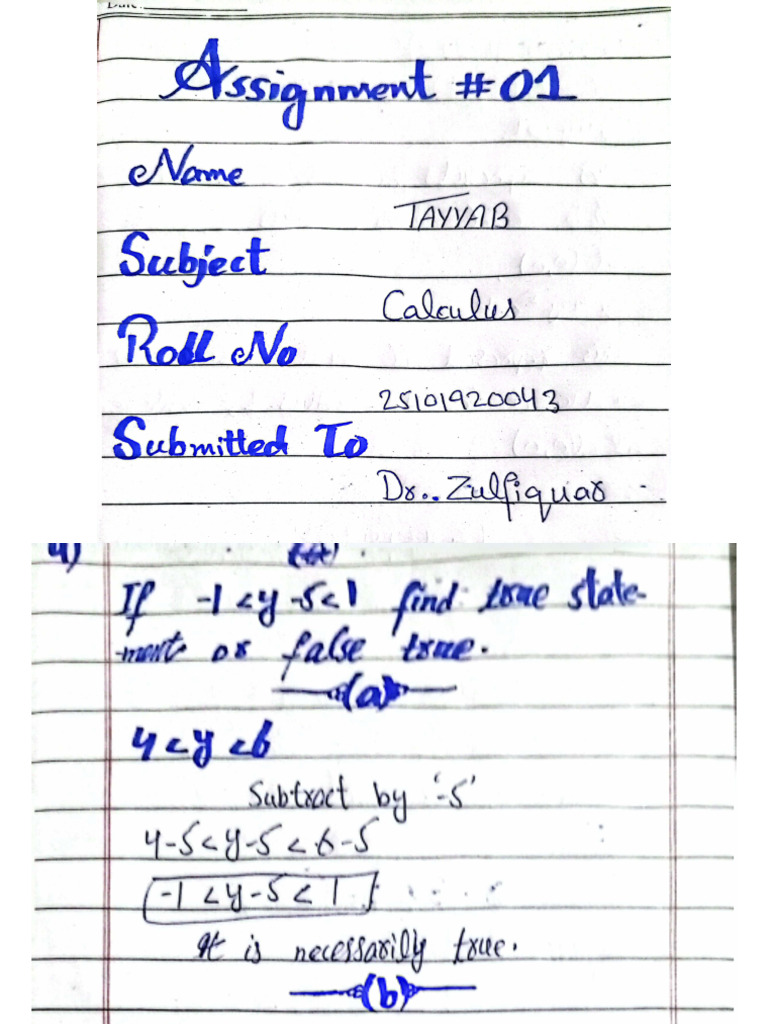 Date:
Assignment #01
Name
TAYYAB
Subject
Calculus
Roll No
25101920043
Submitted To
Dr.. Zulfiquar
4)
If -1 < y -5 < 1 find true state-
-ment or false true.
(a)
4 < y < 6
Subtract by '-5'
4-5 < y-5 < 6-5
-1 < y-5 < 1
It is necessarily true.
(b)